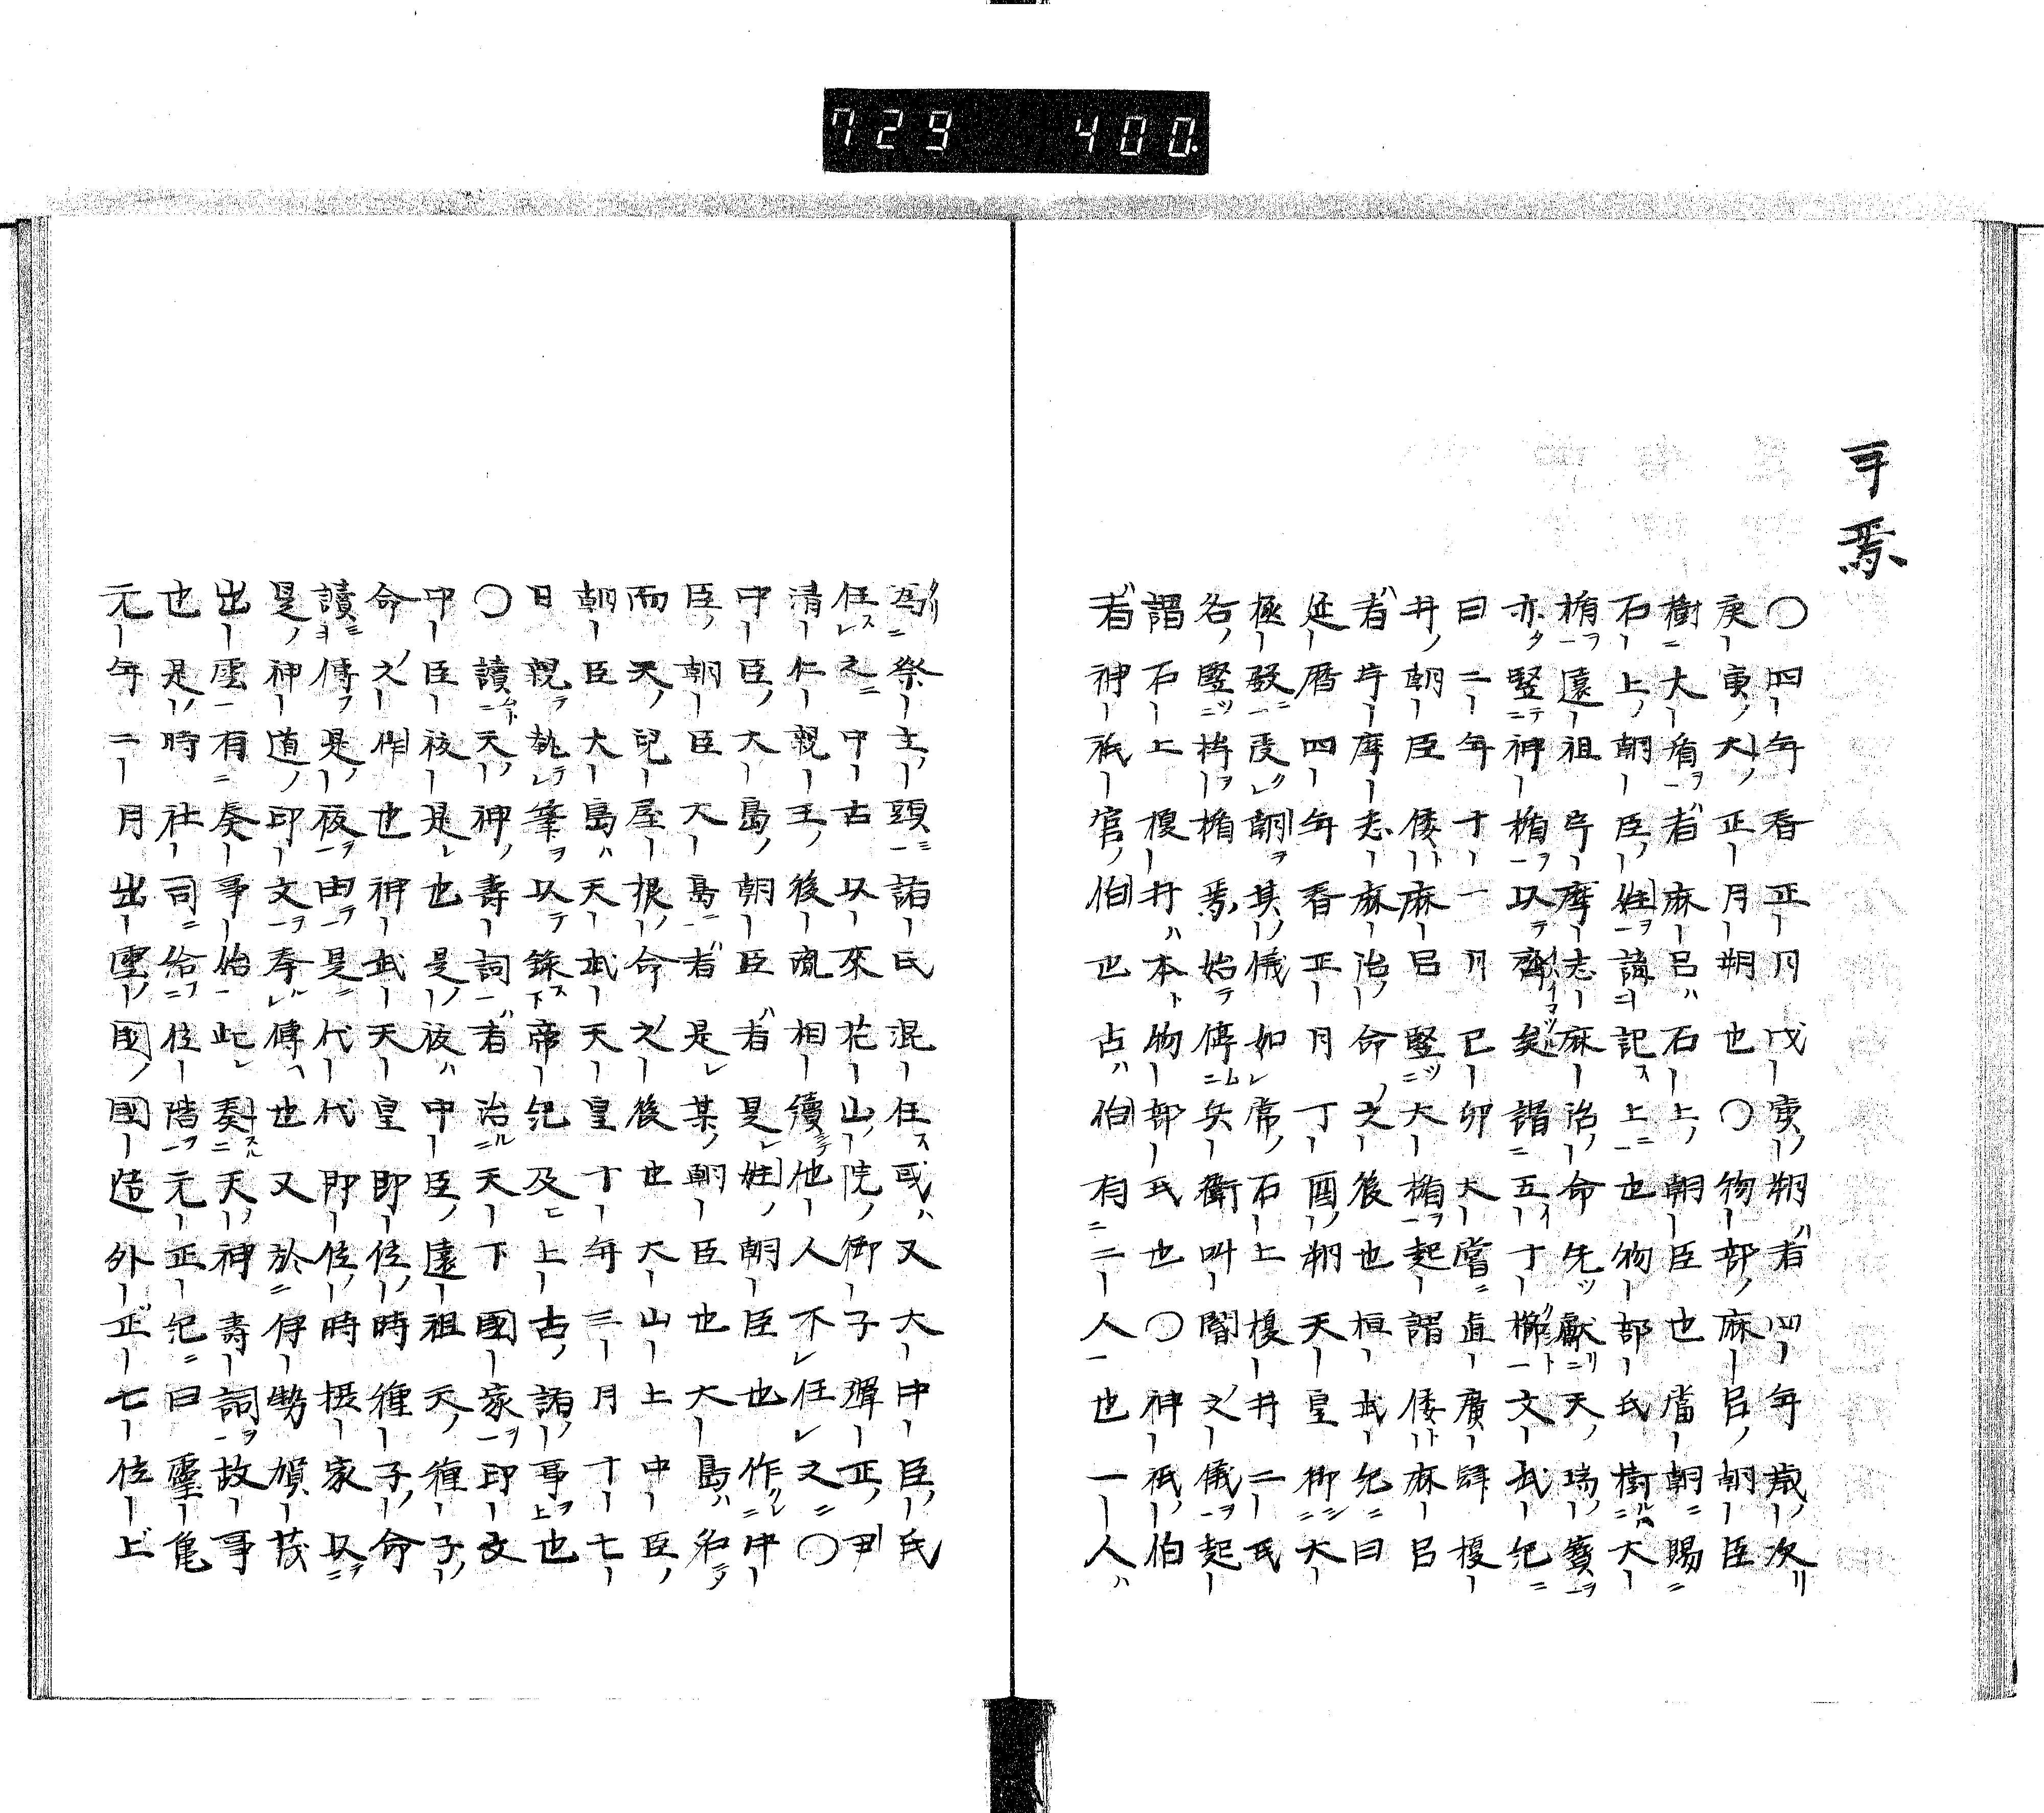 于焉
○四年春正月戊寅朔者四年歳次
庚寅大正月朔也○物部麻呂朝臣
樹大盾者麻呂石上朝臣也當朝賜
石上朝臣姓諱記上也物部氏樹大
楯遠祖宇摩志麻治命先獻天瑞寶
亦竪神楯以齊矣謂五十櫛文武紀
曰二年十一月己卯大嘗直廣肆榎
井朝臣倭麻呂竪大楯起謂倭麻呂
者宇摩志麻治命之後也桓武紀曰
延暦四年春正月丁酉朔天皇御大
極殿受朝其儀如常石上榎井二氏
各竪桙楯焉始停兵衛叫閽之儀起
謂石上榎井本物部氏也○神祇伯
者神祇官伯也占伯有二人也一人
為祭主頭諸氏混任或又大中臣氏
任之中古以來花山院御子彈正尹
清仁親王後胤相續他人不任之○
中臣大島朝臣者是姓朝臣也作中
臣朝臣大島者是某朝臣也大島名
而天兒屋根命之後也大山上中臣
朝臣大島天武天皇十年三月十七
日親執筆以錄帝紀及上古諸事也
○讀天神壽詞者治天下國家印文
中臣祓是也是祓中臣遠祖天種子
命之作也神武天皇即位時種子命
讀傳是祓由是代代即位時摂家以
是神道印文奉傳也又於伊勢賀茂
出雲有奏事始此奏天神壽詞故事
也是時社司給位階元正紀曰靈亀
元年二月出雲國國造外正七位上
729 400.